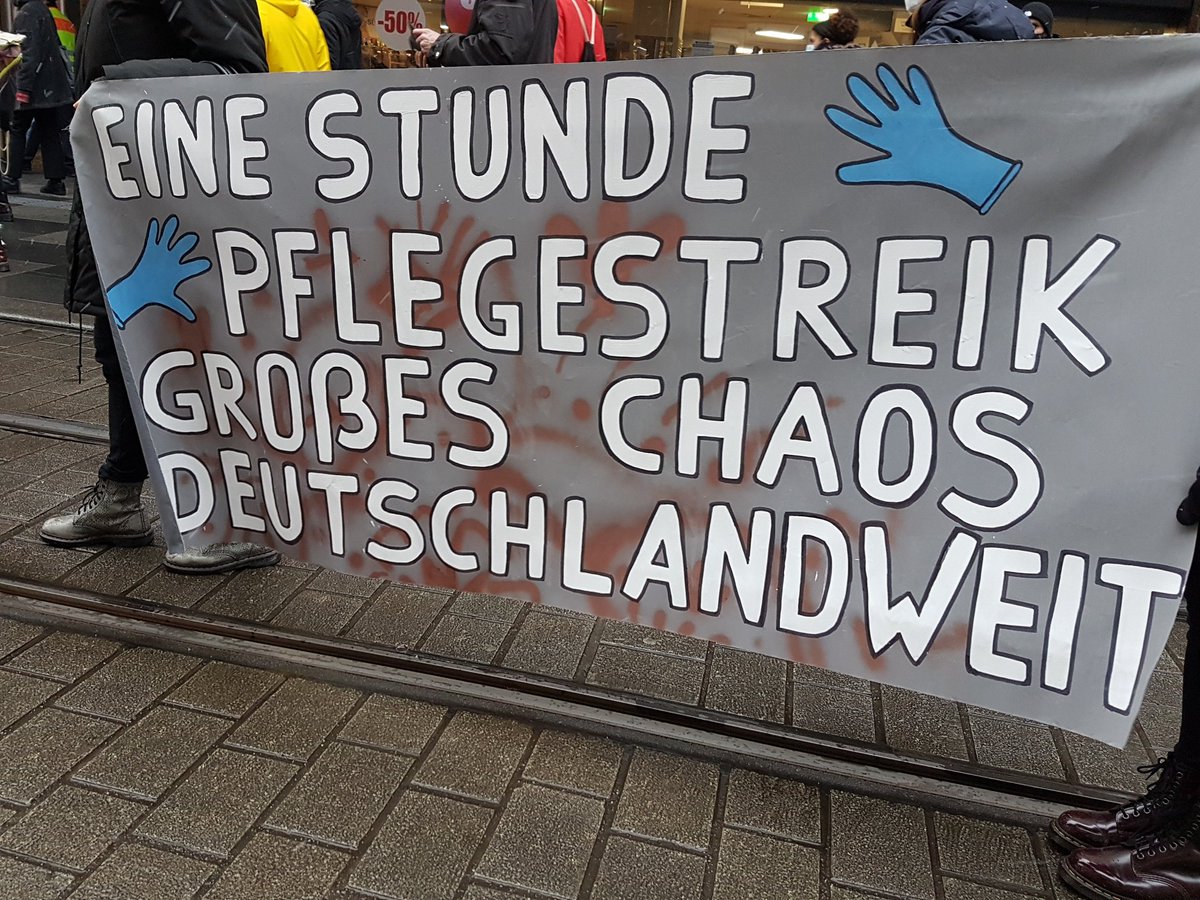 -50%
EINE STUNDE
PFLEGESTREIK
GROßES CHAOS
DEUTSCHLANDWEIT